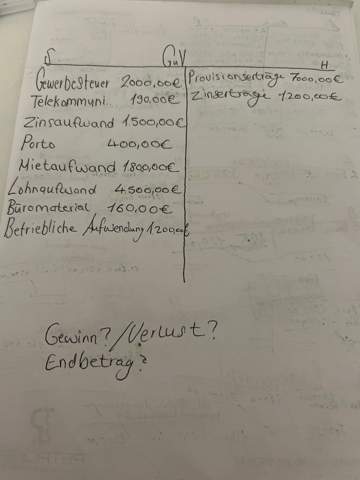 S GuV H
Gewerbesteuer 2000,00€ Provisionserträge 7000,00€
Telekommuni. 190,00€ Zinserträge 1200,00€
Zinsaufwand 1500,00€
Porto 400,00€
Mietaufwand 1800,00€
Lohnaufwand 4500,00€
Büromaterial 160,00€
Betriebliche Aufwendung 1200,00€
Gewinn?/Verlust?
Endbetrag?